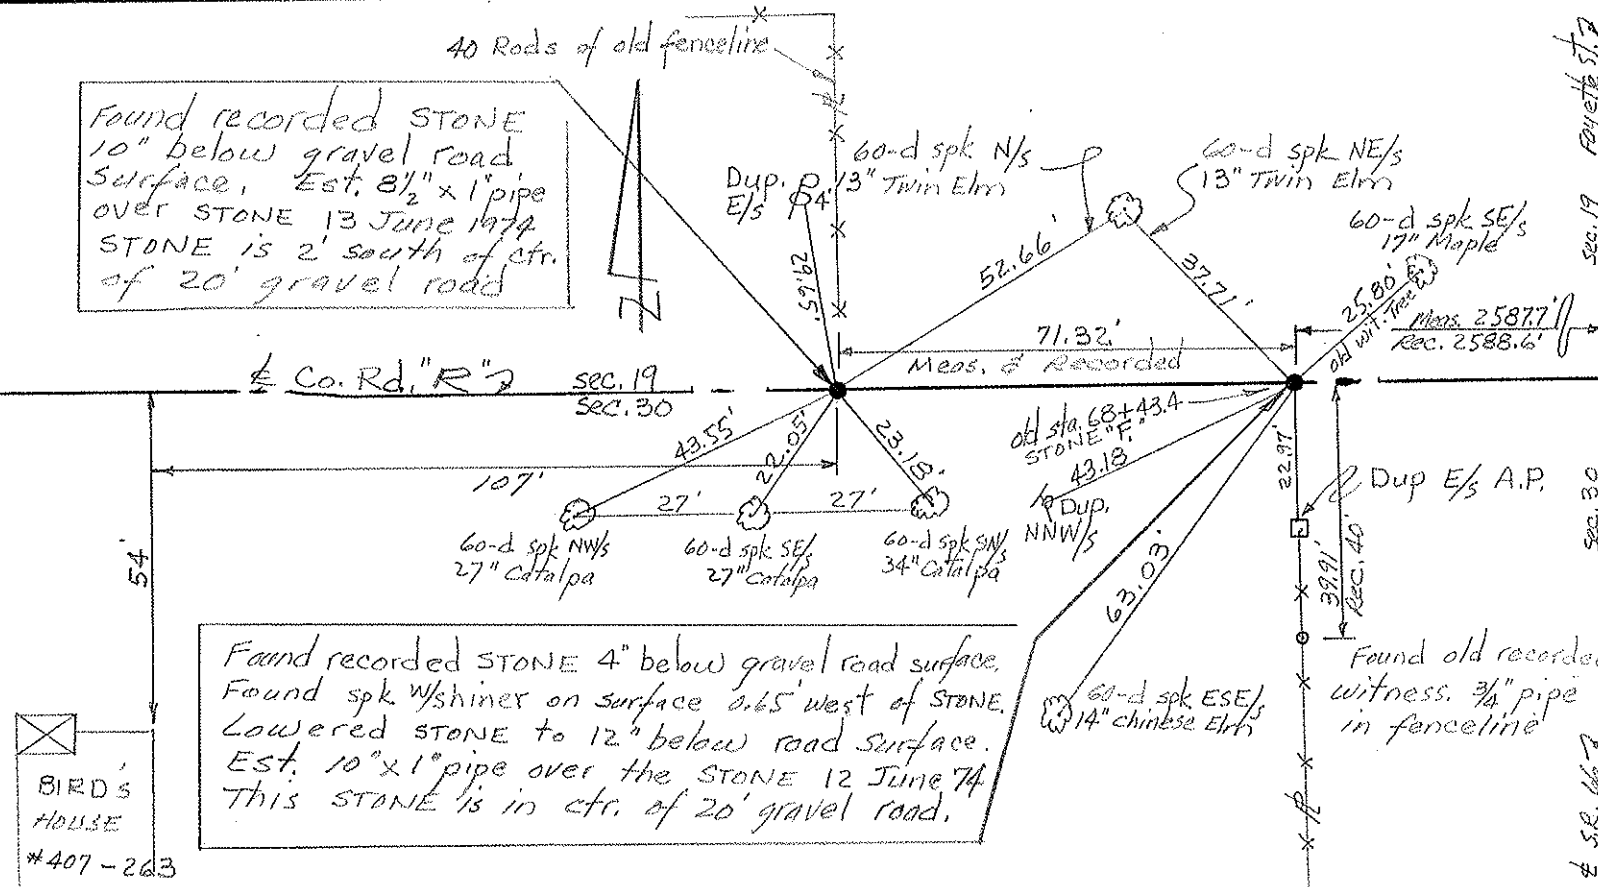 40 Rods of old fenceline
Found recorded STONE
10" below gravel road
Surface. Est. 8½" x 1" pipe
over STONE 13 June 1974
STONE is 2' south of ctr.
of 20' gravel road
N
Dup.
E/s
4"
29.65'
60-d spk N/s
13" Twin Elm
60-d spk NE/s
13" Twin Elm
60-d spk SE/s
17" Maple
52.66'
37.71'
25.80'
old wit. Tree
71.32'
Meas. & Recorded
Meas. 2587.7'
Rec. 2588.6'
Fayette St.
sec. 19
sec. 30
℄ S.R. 66
℄ Co. Rd. "R"
sec. 19
sec. 30
43.55'
22.05'
23.18'
107'
27'
27'
60-d spk NW/s
27" Catalpa
60-d spk SE/s
27" Catalpa
60-d spk SW/s
34" Catalpa
old sta. 68+43.4
STONE "F."
43.18
Dup.
NNW/s
63.03'
22.97'
Dup E/s A.P.
39.91'
Rec. 40'
54'
60-d spk ESE/s
14" chinese Elm
Found old recorded
witness. ¾" pipe
in fenceline
Found recorded STONE 4" below gravel road surface.
Found spk w/shiner on surface 0.65' west of STONE.
Lowered STONE to 12" below road surface.
Est. 10" x 1" pipe over the STONE 12 June 74
This STONE is in ctr. of 20' gravel road.
BIRD'S
HOUSE
#407-263